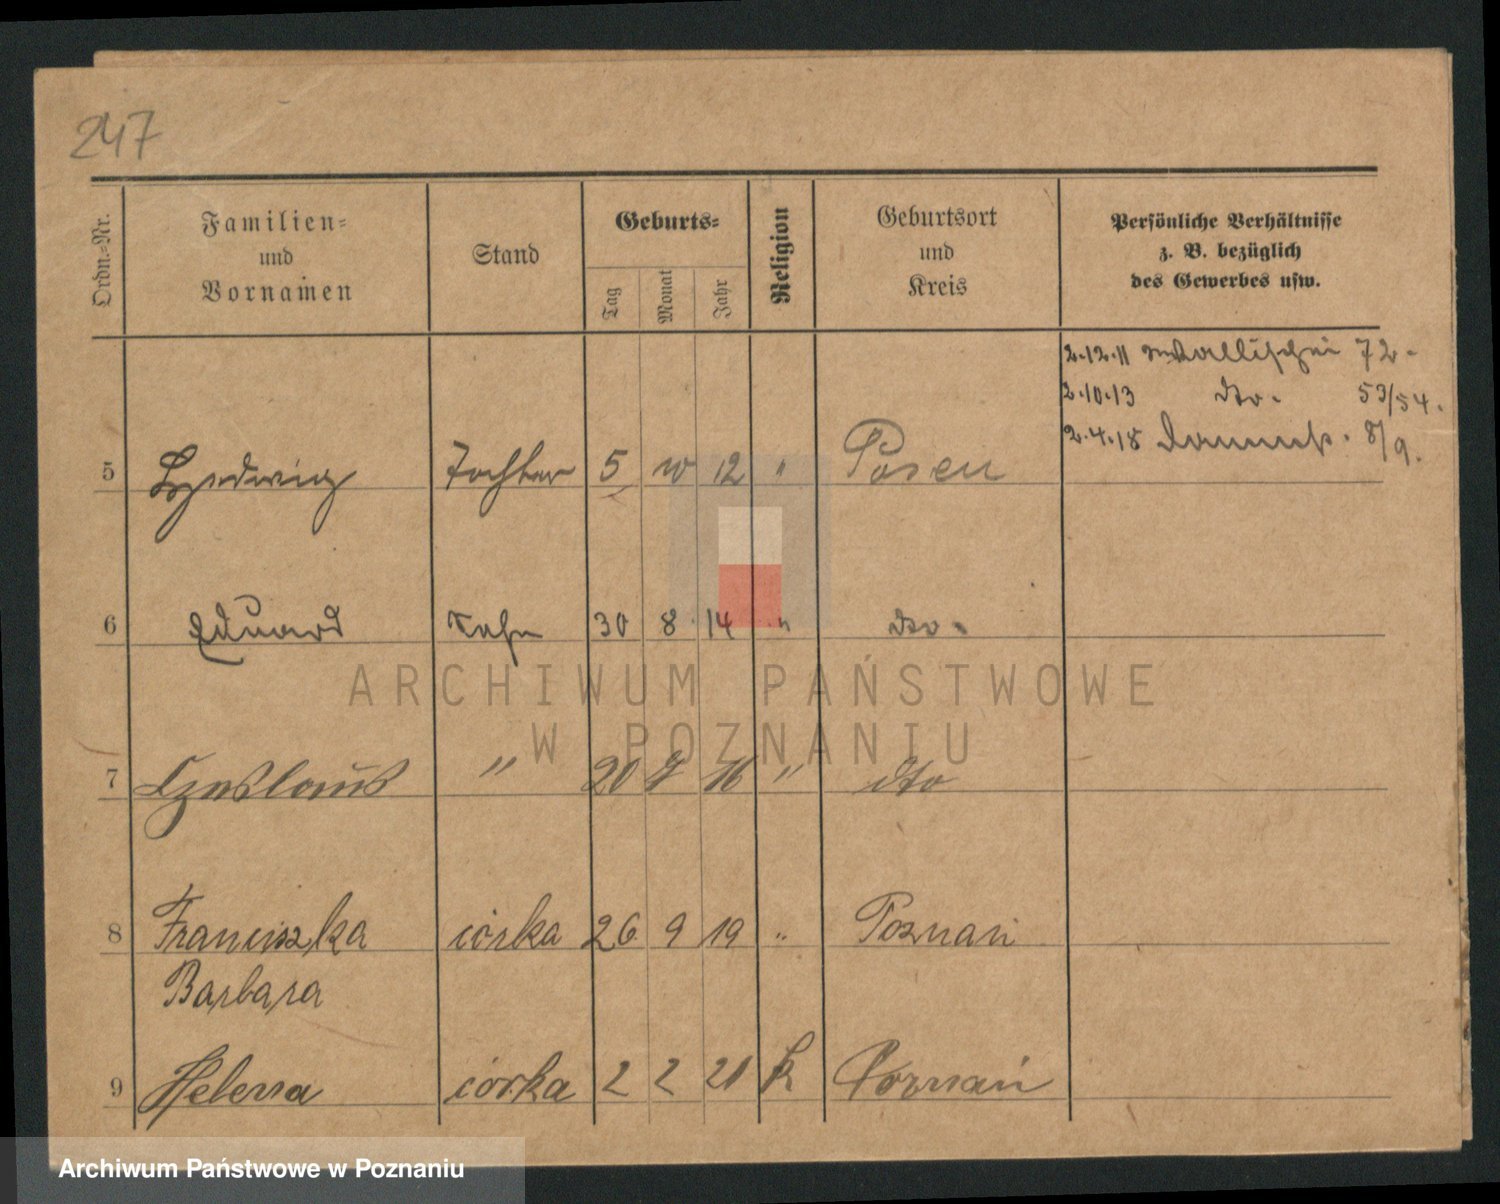 247
Ordn.-Nr.
Familien-
und
Vornamen
Stand
Geburts-
Tag
Monat
Jahr
Religion
Geburtsort
und
Kreis
Persönliche Verhältnisse
z. B. bezüglich
des Gewerbes usw.
2.12.11 Wallischei 72.
2.10.13 dto. 53/54.
2.4.18 8/9.
5 Hedwig Tochter 5 10 12 " Posen
6 Eduard Sohn 30 8 14 " dto.
7 Czeslaus " 20 7 16 " dto
8 Franciszka córka 26 9 19 " Poznań
Barbara
9 Helena córka 2 2 21 k Poznań
ARCHIWUM PAŃSTWOWE
W POZNANIU
Archiwum Państwowe w Poznaniu